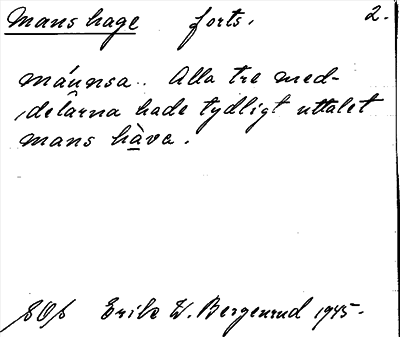 Mans hage forts. 2.
máunsa.. Alla tre med-
delarna hade tydligt uttalet
mans hàva.
SOB Erik W. Bergenrud 1945.